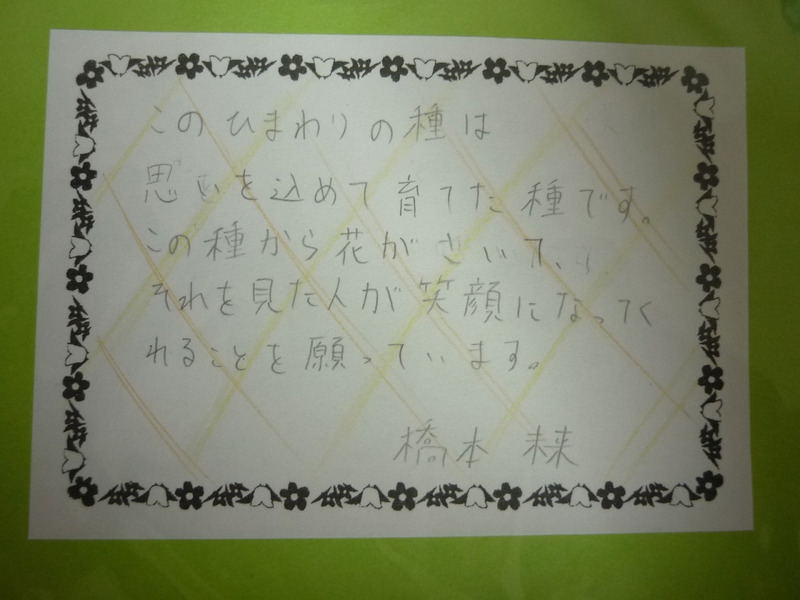 このひまわりの種は
思いを込めて育てた種です。
この種から花がさいて、
それを見た人が笑顔になってく
れることを願っています。
橋本 未来